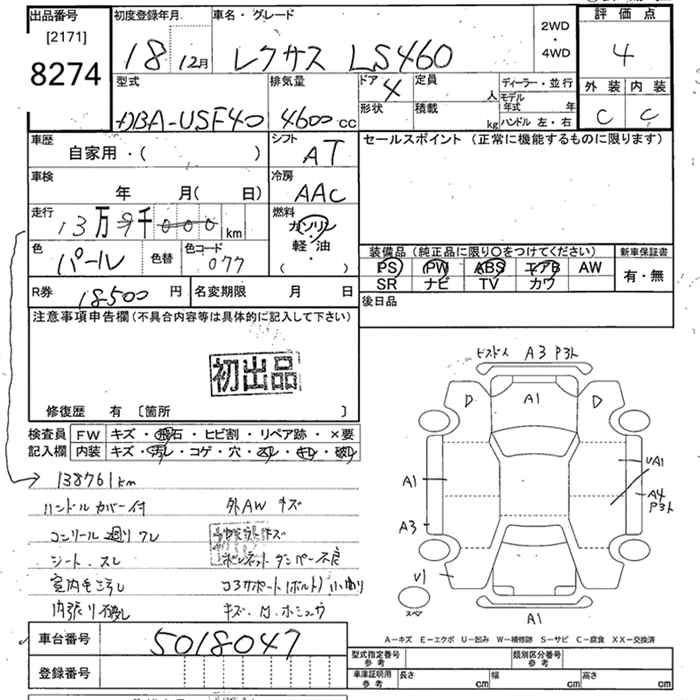 出品番号
[2171]
8274
初度登録年月
18 12月
車名・グレード
レクサス LS460
2WD
・
4WD
評価点
4
外装 内装
C C
型式
DBA-USF40
排気量
4600 CC
ドア 4
形状
定員 人
積載 kg
ディーラー・並行
モデル年式 年
ハンドル 左・右
車歴
自家用・( )
シフト
AT
セールスポイント (正常に機能するものに限ります)
車検
年 月( 日)
冷房
AAC
走行
13万9千000km
燃料
ガソリン
・
軽油
( ・ )
色
パール
色替
色コード
077
装備品 (純正品に限り○をつけてください)
新車保証書
PS PW ABS エアB AW
SR ナビ TV カワ
有・無
R券 18500円
名変期限 月 日
後日品
注意事項申告欄 (不具合内容等は具体的に記入して下さい)
初出品
修復歴 有 [箇所 ]
検査員記入欄
FW キズ・飛石・ヒビ割・リペア跡・×要
内装 キズ・汚レ・コゲ・穴・スレ・キレ・破レ
138761km
ハンドルカバー付 外AW キズ
シート・スレ
A3 Pヨト
A1
D D
A1
A3
UA1
A4
Pヨト
U1
スペア
A1
車台番号 5018047
登録番号
A-キズ E-エクボ U-凹み W-補修跡 S-サビ C-腐食 XX-交換済
型式指定番号 参考
類別区分番号 参考
車庫証明用 参考
長さ cm 幅 cm 高さ cm